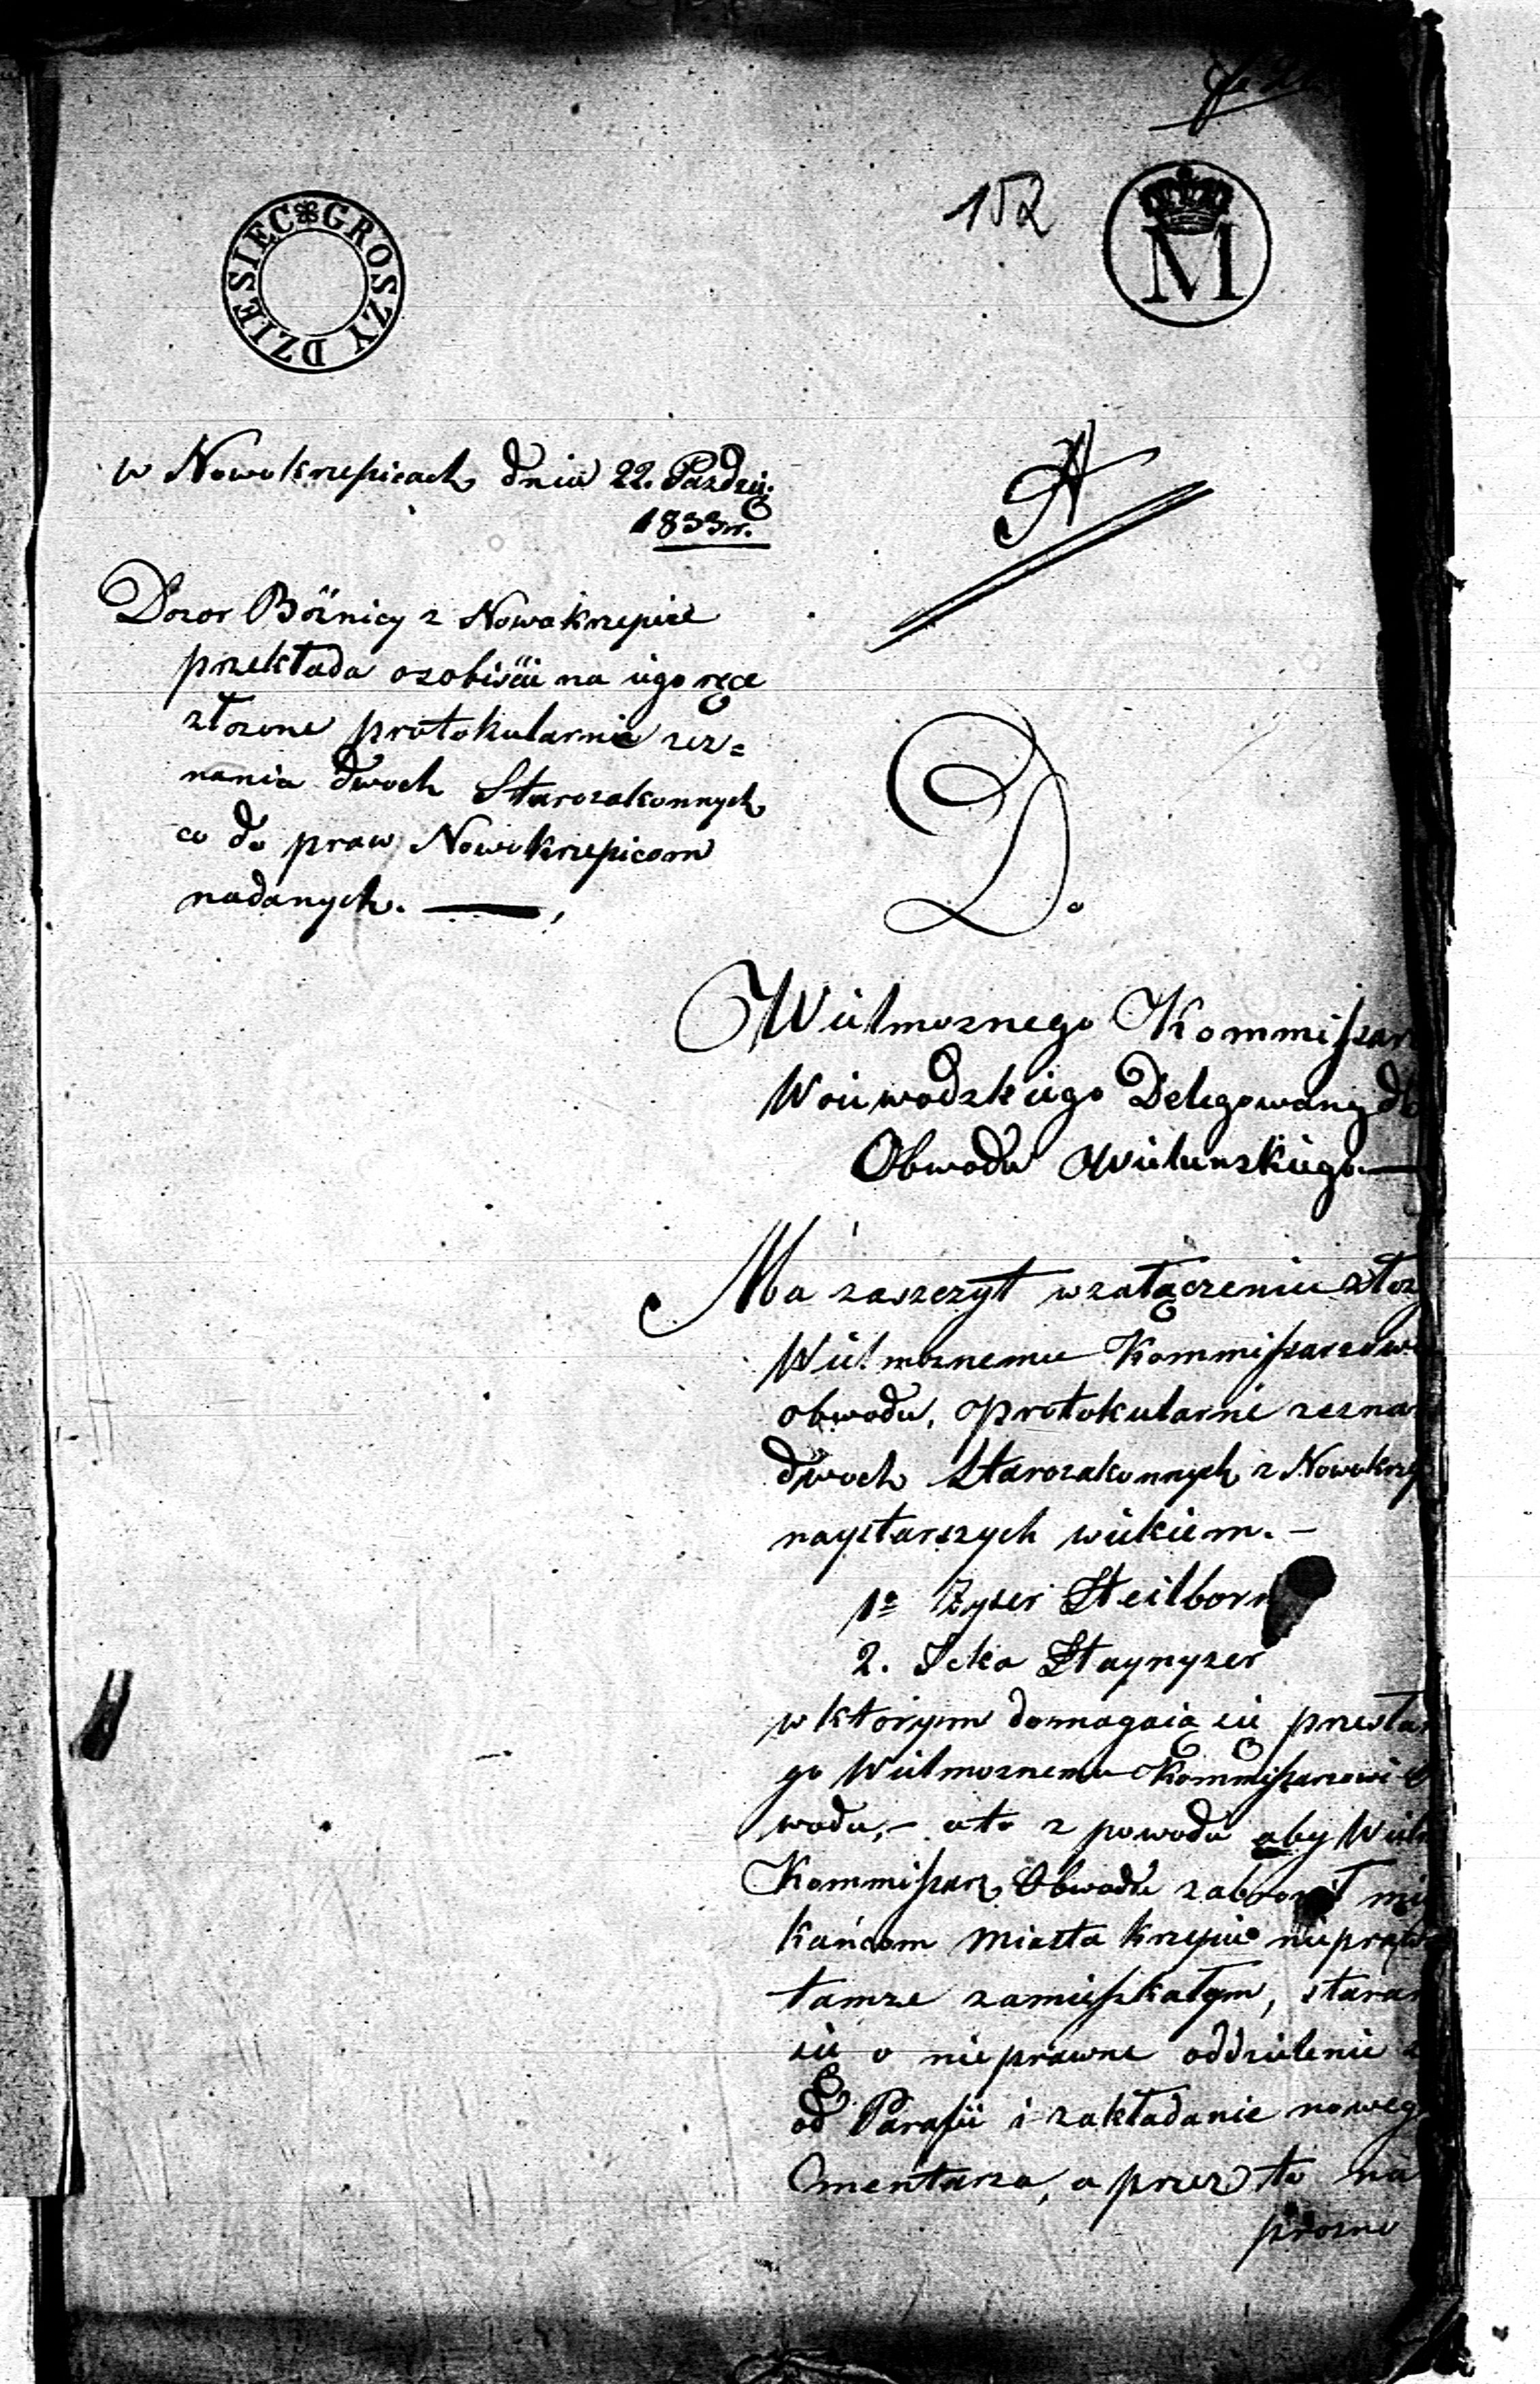 DZIESIEC GROSZY
152
M
w Nowokrzepicach dnia 22. Paździe.
1833 r.
A
Dozor Bóżnicy z Nowokrzepic
przekłada osobiście na iego ręce
złozone protokularnie zez=
nania dwoch Starozakonnych
co do praw Nowokrzepicom
nadanych. —
D.
Wielmoznego Kommissar
Woiewodzkiego Delegowany do
Obwodu Wielunskiego —
Ma zaszczyt w załączeniu złoz
Wielmoznemu Kommissarzowi
obwodu, protokularne zezna
dwoch Starozakonnych z Nowokrzep
naystarszych wiekiem. —
1º Zyser Steilborn
2. Icka Staynyzer
w ktorym domagaią się przesła
go Wielmoznemu Kommissarzowi O
wodu, — a to z powodu aby Wielm
Kommissarz Obwodu zabronił mie
kańcom Miasta Krzepic nieprawn
tamze zamieszkałym, staran
się o nieprawne oddzielenie
od Parafii i zakładanie noweg
Cmentarza, a przez to na
prozno